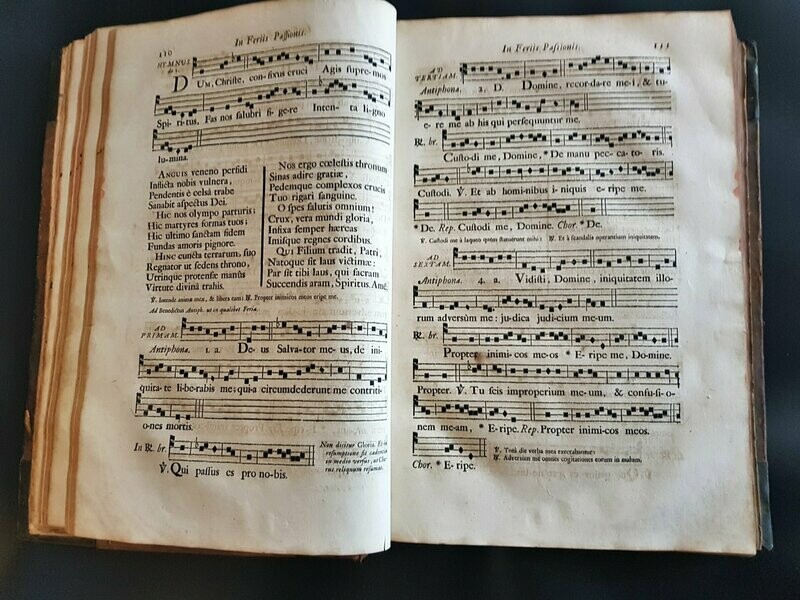 110
In Feriis Passionis.
HYMNUS
DUM, Christe, confixus cruci Agis supremos
Spiritus, Fas nos salubri figere Intenta ligno
lumina.
ANGUIS veneno perfidi
Inflicta nobis vulnera,
Pendentis è celsâ trabe
Sanabit aspectus Dei.
Hic nos olympo parturis;
Hic martyres formas tuos;
Hic ultimo sanctam fidem
Fundas amoris pignore.
HINC cuncta terrarum, suo
Regnator ut sedens throno,
Utrinque protensæ manûs
Virtute divinâ trahis.
Nos ergo cœlestis thronum
Sinas adire gratiæ,
Pedemque complexos crucis
Tuo rigari sanguine.
O spes salutis omnium!
Crux, vera mundi gloria,
Infixa semper hæreas
Imisque regnes cordibus.
QUI Filium tradit, Patri,
Natoque fit laus victimæ:
Par sit tibi laus, qui sacram
Succendis aram, Spiritus. Amē.
℣. Intende animæ meæ, & libera eam: ℟. Propter inimicos meos eripe me.
Ad Benedictus Antiph. ut in qualibet Feria.
AD PRIMAM.
Antiphona. 1. a. Deus Salvator meus, de ini-
quitate liberabis me: quia circumdederunt me contriti-
ones mortis.
In ℟. br.
℣. Qui passus es pro nobis.
Non dicitur Gloria.
In Feriis Passionis.
111
AD TERTIAM.
Antiphona. 2. D. Domine, recordare mei, & tu-
ere me ab his qui persequuntur me.
℟. br.
Custodi me, Domine, * De manu peccatoris.
Custodi. ℣. Et ab hominibus iniquis eripe me.
* De. Rep. Custodi me, Domine. Chor. * De.
℣. Custodi me à laqueo quem statuerunt mihi: ℟. Et à scandalis operantium iniquitatem.
AD SEXTAM.
Antiphona. 4. a. Vidisti, Domine, iniquitatem illo-
rum adversùm me: judica judicium meum.
℟. br.
Propter inimicos meos * Eripe me, Domine.
Propter. ℣. Tu scis improperium meum, & confusio-
nem meam, * Eripe. Rep. Propter inimicos meos.
Chor. * Eripe.
℣. Totâ die verba mea execrabantur:
℟. Adversùm me omnes cogitationes eorum in malum.